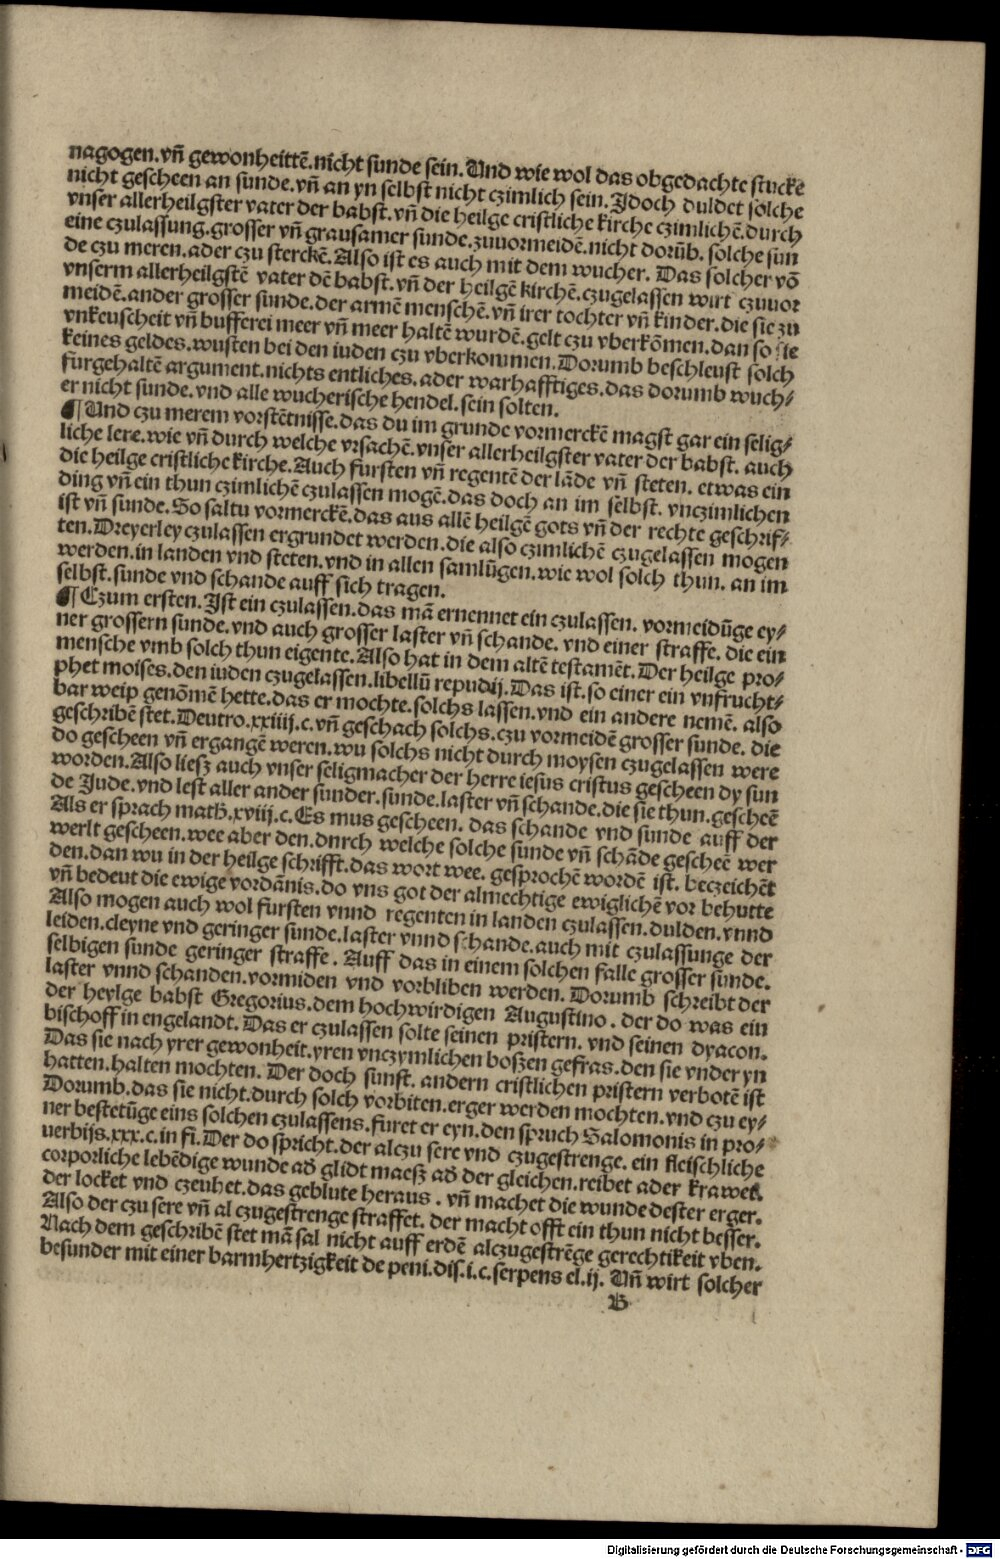 nagogen.vn̄ gewonheittē.nicht sunde sein.Und wie wol das obgedachte stucke
nicht gescheen an sunde.vn̄ an yn selbst nicht czimlich sein.Jdoch duldet solche
vnser allerheilgster vater der babst.vn̄ die heilge cristliche kirche czimlichē.durch
eine czulassung.grosser vn̄ grausamer sunde.zuuormeidē.nicht dorūb. solche sun
de czu meren.ader czu sterckē.Also ist es auch mit dem wucher. Das solcher vō
vnserm allerheilgstē vater dē babst.vn̄ der heilgē kirchē.czugelassen wirt czuuor
meidē.ander grosser sunde.der armē menschē.vn̄ irer tochter vn̄ kinder.die sie zu
vnkeuscheit vn̄ bufferei meer vn̄ meer haltē wurdē.gelt czu vberkōmen.dan so sie
keines geldes.wusten bei den iuden czu vberkommen.Dorumb beschleust solch
furgehaltē argument.nichts entliches.ader warhafftiges.das dorumb wuch⸗
er nicht sunde.vnd alle wucherische hendel.sein solten.
¶Und czu merem vorstētnisse.das du im grunde vormerckē magst gar ein selig⸗
liche lere.wie vn̄ durch welche vrsachē.vnser allerheilgster vater der babst. auch
die heilge cristliche kirche.Auch fursten vn̄ regentē der lāde vn̄ steten. etwas ein
ding vn̄ ein thun czimlichē czulassen mogē.das doch an im selbst. vnczimlichen
ist vn̄ sunde.So saltu vormerckē.das aus allē heilgē gots vn̄ der rechte geschrif⸗
ten.Dreyerley czulassen ergrundet werden.die also czimlichē czugelassen mogen
werden.in landen vnd steten.vnd in allen samlūgen.wie wol solch thun. an im
selbst.sunde vnd schande auff sich tragen.
¶Czum ersten.Ist ein czulassen.das mā ernennet ein czulassen. vormeidūge ey⸗
ner grossern sunde.vnd auch grosser laster vn̄ schande. vnd einer straffe. die ein
mensche vmb solch thun eigente.Also hat in dem altē testamēt.Der heilge pro⸗
phet moises.den iuden czugelassen.libellū repudij.Das ist.so einer ein vnfrucht⸗
bar weip genōmē hette.das er mochte.solchs lassen.vnd ein andere nemē. also
geschribē stet.Deutro.xxiiij.c.vn̄ geschach solchs.czu vormeidē grosser sunde. die
do gescheen vn̄ ergangē weren.wu solchs nicht durch moysen czugelassen were
worden.Also liesz auch vnser seligmacher der herre iesus cristus gescheen dy sun
de Jude.vnd lest aller ander sunder.sunde.laster vn̄ schande.die sie thun.gescheē
Als er sprach math.xviij.c.Es mus gescheen. das schande vnd sunde auff der
werlt gescheen.wee aber den.dnrch welche solche sunde vn̄ schāde gescheē wer
den.dan wu in der heilge schrifft.das wort wee. gesprochē wordē ist. beczeichēt
vn̄ bedeut die ewige vordānis.do vns got der almechtige ewiglichē vor behutte
Also mogen auch wol fursten vnnd regenten in landen czulassen.dulden.vnnd
leiden.cleyne vnd geringer sunde.laster vnnd schande.auch mit czulassunge der
selbigen sunde geringer straffe. Auff das in einem solchen falle grosser sunde.
laster vnnd schanden.vormiden vnd vorbliben werden. Dorumb schreibt der
der heylge babst Gregorius.dem hochwirdigen Augustino. der do was ein
bischoff in engelandt. Das er czulassen solte seinen pristern. vnd seinen dyacon.
Das sie nach yrer gewonheit.yren vnczymlichen boßen gefras.den sie vnder yn
hatten.halten mochten. Der doch sunst. andern cristlichen pristern verbotē ist
Dorumb.das sie nicht.durch solch vorbiten.erger werden mochten.vnd czu ey⸗
ner bestetūge eins solchen czulassens.furet er eyn.den spruch Salomonis in pro⸗
uerbijs.xxx.c.in fi.Der do spricht.der alczu sere vnd czugestrenge. ein fleischliche
corporliche lebēdige wunde ad glidt maesz ad der gleichen.reibet ader krawet.
der locket vnd czeuhet.das geblute heraus. vn̄ machet die wunde dester erger.
Also der czu sere vn̄ al czugestrenge straffet. der macht offt ein thun nicht besser.
Nach dem geschribē stet mā sal nicht auff erdē alczugestrēge gerechtikeit vben.
besunder mit einer barmhertzigkeit de peni.dis.i.c.serpens el.ij. Un̄ wirt solcher
B
Digitalisierung gefördert durch die Deutsche Forschungsgemeinschaft - DFG